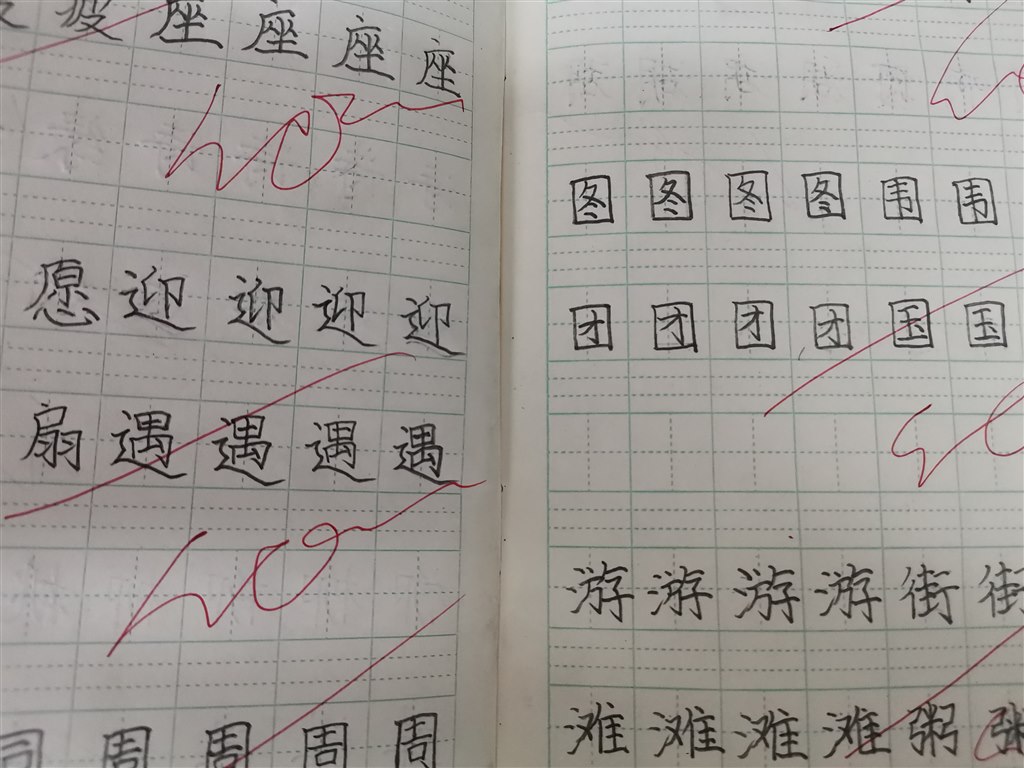 疲座座座座
愿迎迎迎迎
扇遇遇遇遇
同周周周周
图图图图围围
团团团团国国
游游游游街街
滩滩滩滩粥粥